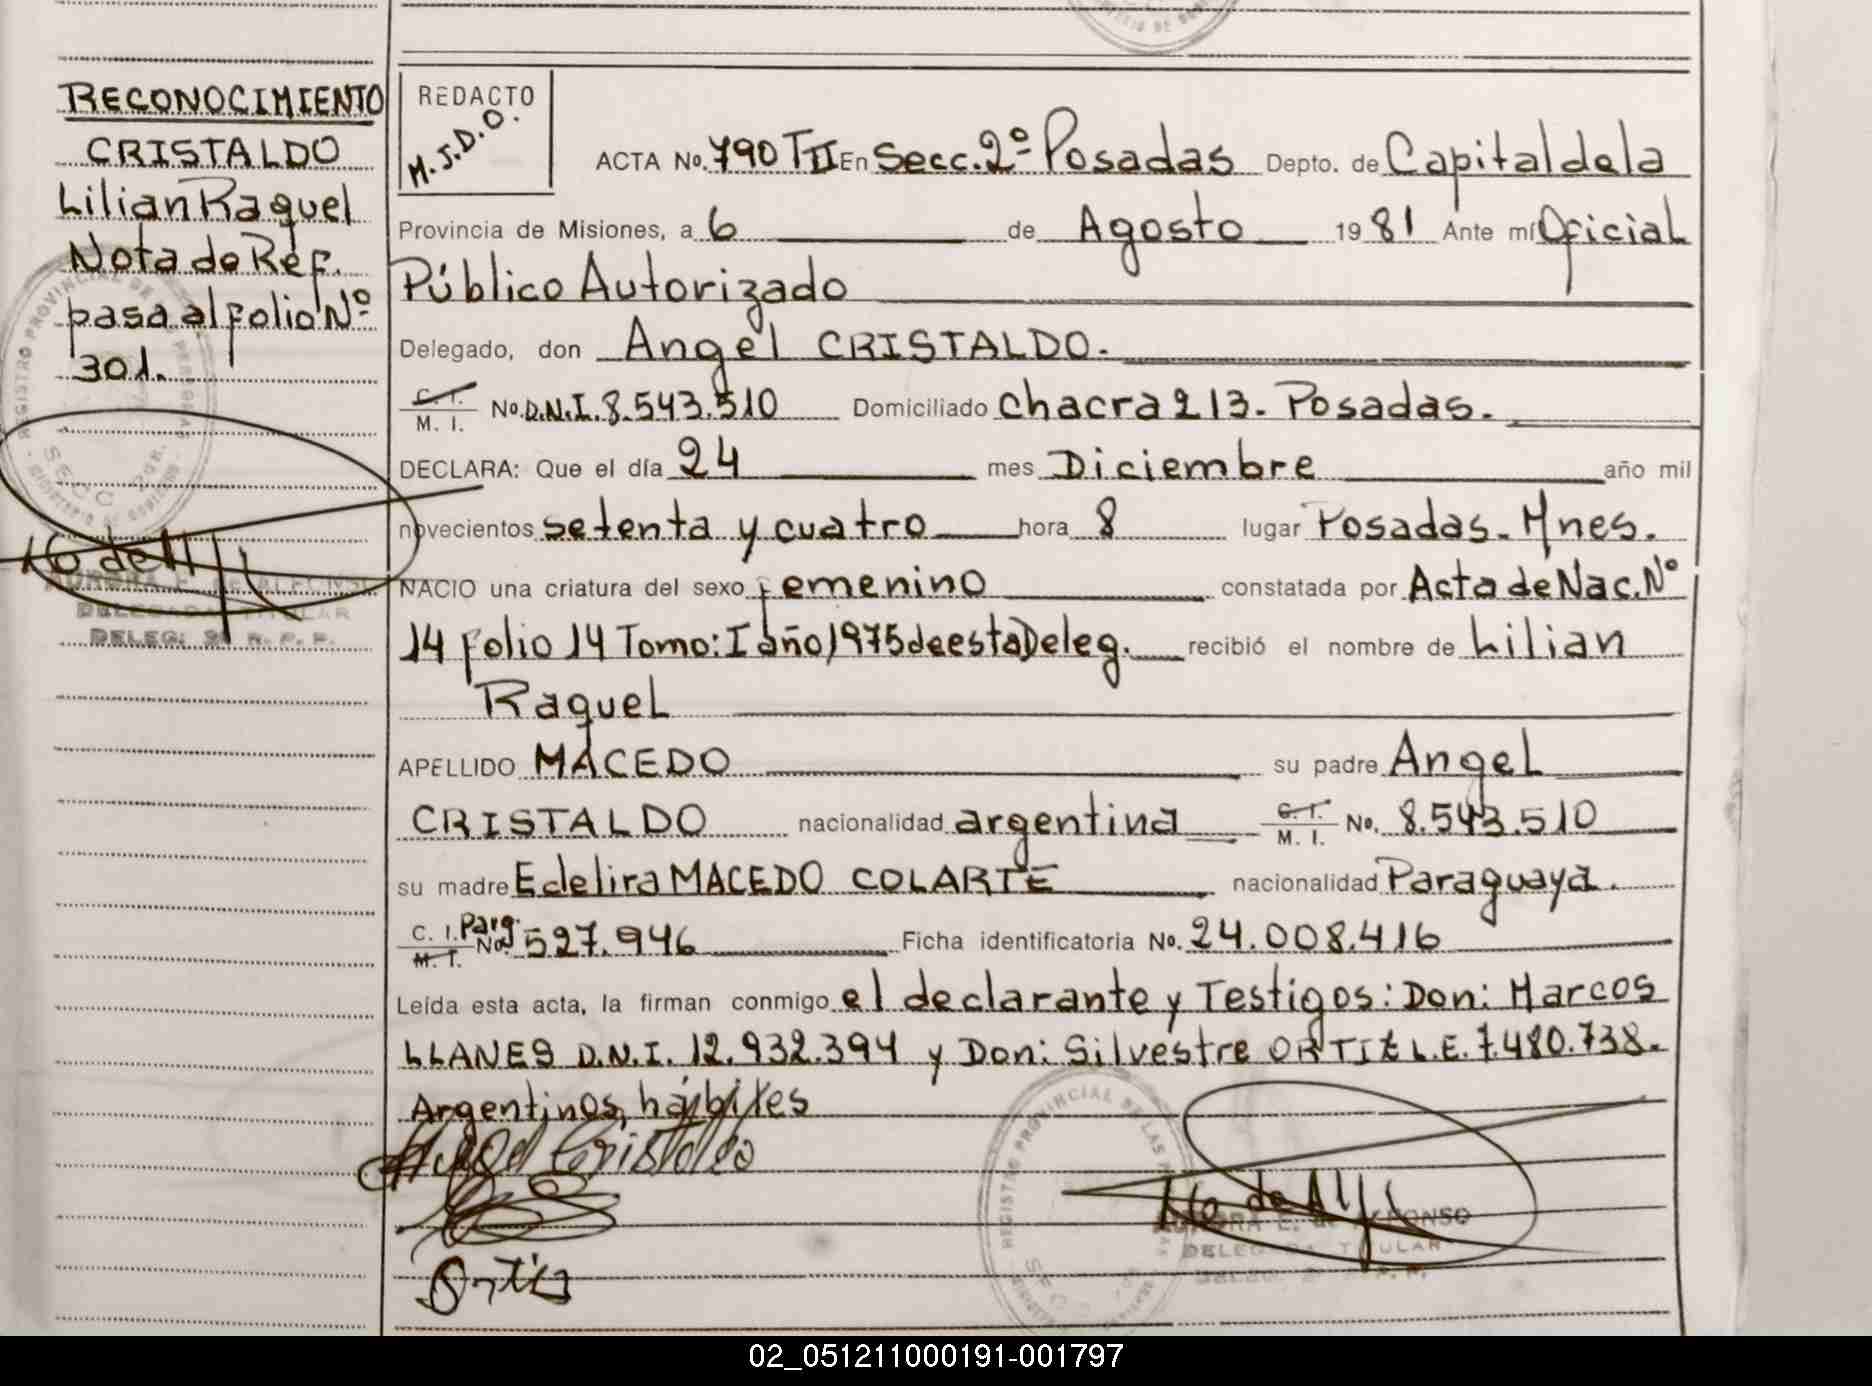 RECONOCIMIENTO
CRISTALDO
Lilian Raquel
Nota de Ref.
pasa al folio Nº
301.
REGISTRO PROVINCIAL DE
SECC
DELEGADA TITULAR
DELEG. 2ª R. P. P.
REDACTO
M.J.D.O.
ACTA No. 790 TII En Secc. 2º Posadas Depto. de Capital de la
Provincia de Misiones, a 6 de Agosto 1981 Ante mí Oficial
Público Autorizado
Delegado, don Angel CRISTALDO.
C. I. M. I. No. D.N.I. 8.543.510 Domiciliado Chacra 213. Posadas.
DECLARA: Que el día 24 mes Diciembre año mil
novecientos setenta y cuatro hora 8 lugar Posadas. Mnes.
NACIO una criatura del sexo femenino constatada por Acta de Nac. Nº
14 folio 14 Tomo: I año 1975 de esta Deleg. recibió el nombre de Lilian
Raquel
APELLIDO MACEDO su padre Angel
CRISTALDO nacionalidad argentina C. I. M. I. No. 8.543.510
su madre Edelira MACEDO COLARTE nacionalidad Paraguaya.
C. I. M. I. Parg. No. 527.946 Ficha identificatoria No. 24.008.416
Leída esta acta, la firman conmigo el declarante y Testigos: Don: Marcos
LLANES D.N.I. 12.932.394 y Don: Silvestre ORTIZ L.E. 7.480.738.
Argentinos, hábiles
Angel Cristaldo
Ortiz
REGISTRO PROVINCIAL DE LAS
DELEGADA TITULAR
02_051211000191-001797